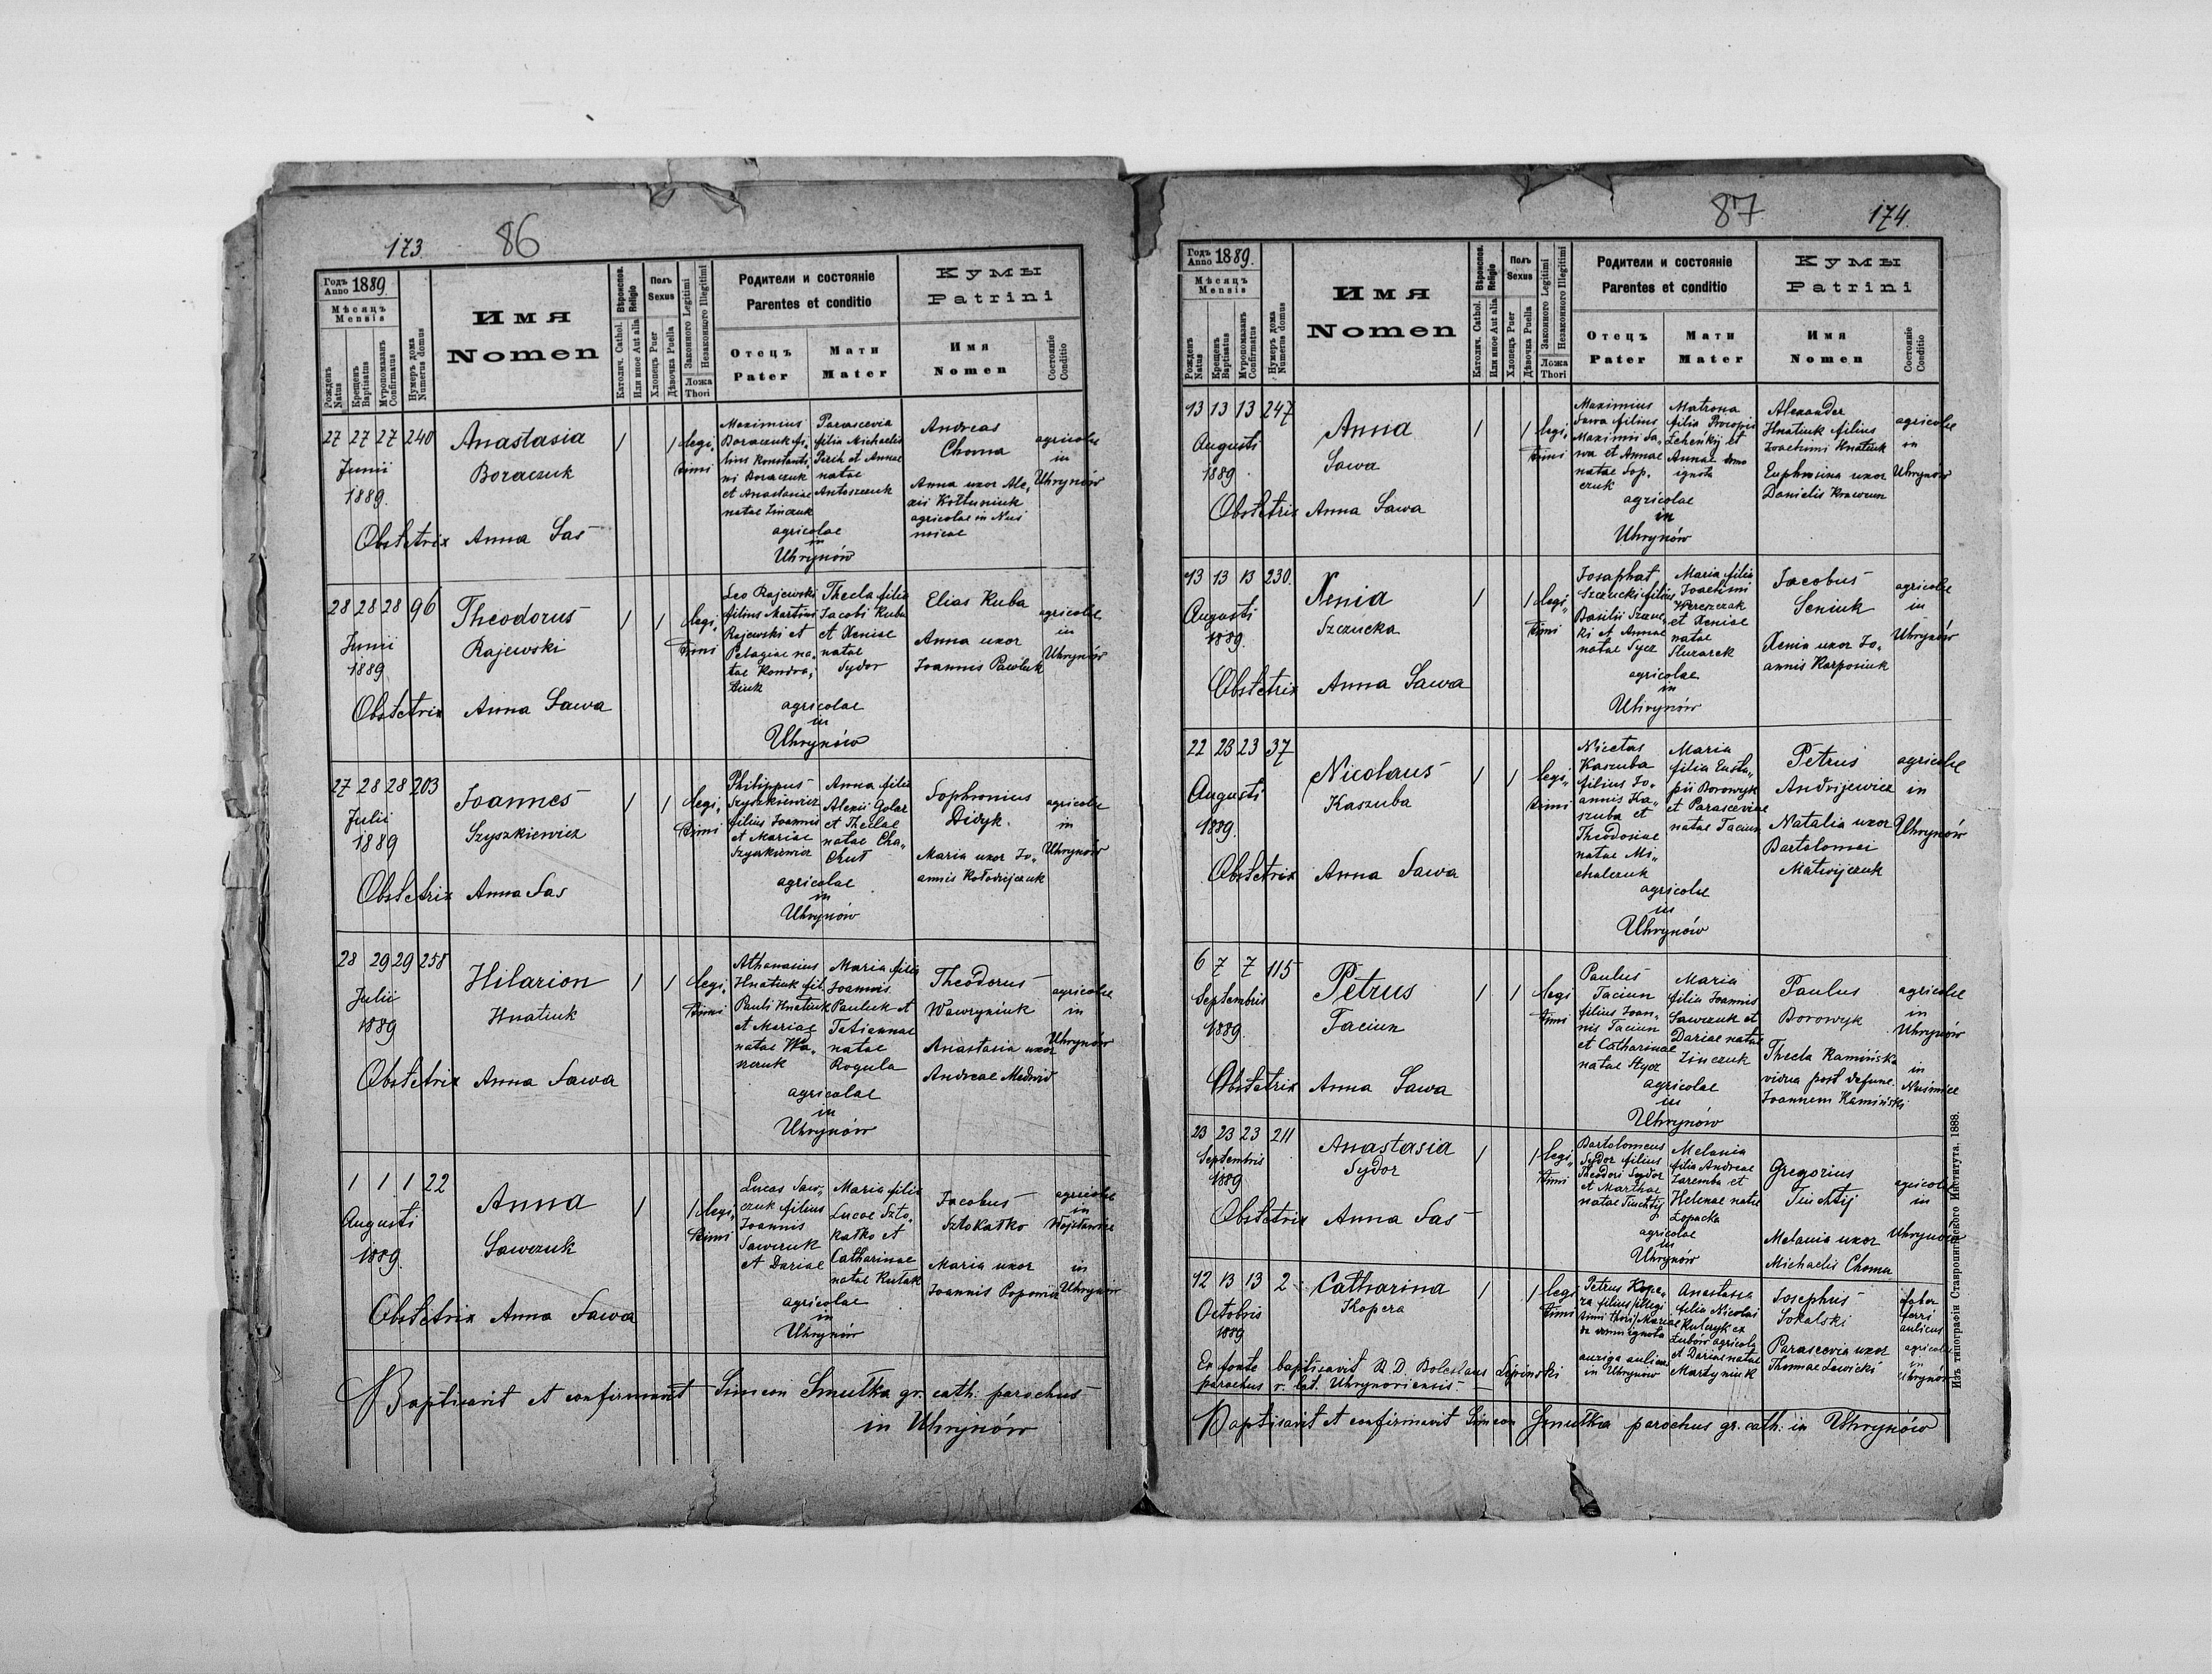 173. 86
Годъ Anno 1889.
Мѣсяцъ
Mensis
Рожденъ Natus
Крещенъ Baptisatus
Муропомазанъ Confirmatus
Нумеръ дома Numerus domus
Имя
Nomen
Вѣроиспов. Religio
Католич. Cathol.
Или иное Aut alia
Полъ
Sexus
Хлопецъ Puer
Дѣвочка Puella
Законного Legitimi
Незаконного Illegitimi
Ложа
Thori
Родители и состояніе
Parentes et conditio
Отецъ
Pater
Мати
Mater
Кумы
Patrini
Имя
Nomen
Состояніе
Conditio
27 27 27 240
Junii
1889.
Anastasia
Boraczuk
1 1 legi„
timi
Maximius
Boraczuk fi„
lius Konstanti„
ni Boraczuk
et Anastasiae
natae Zinczuk
Parascevia
filia Michaelis
et Annae
natae
Antoszczuk
agricolae
in
Uhrynów
Andreas
Choma
Anna uxor Ale„
xii Kołtuniuk
agricolae in Nuś
micae
agricolae
in
Uhrynów
Obstetrix Anna Sas
28 28 28 96
Junii
1889
Theodorus
Rajewski
1 1 legi„
timi
Leo Rajewski
filius Martini
Rajewski et
Pelagiae na„
tae Kondra„
tiuk
Thecla filia
Jacobi Kuba
et Xeniae
natae
Sydor
agricolae
in
Uhrynów
Elias Kuba
Anna uxor
Joannis Pawluk
agricolae
in
Uhrynów
Obstetrix Anna Sawa
27 28 28 203
Julii
1889
Joannes
Szyszkiewicz
1 1 legi„
timi
Philippus
Szyszkiewicz
filius Joannis
et Mariae
Szyszkiewicz
Anna filia
Alexii Golar
et Theclae
natae Cha„
chuł
agricolae
in
Uhrynów
Sophronius
Didyk.
Maria uxor Jo„
annis Kołodijczuk
agricolae
in
Uhrynów
Obstetrix Anna Sas
28 29 29 258
Julii
1889
Hilarion
Hnatiuk
1 1 legi„
timi
Athanasius
Hnatiuk fil.
Pauli Hnatiuk
et Mariae
natae Wa„
Maria filia
Joannis
Pauluk et
Tatiannae
natae
Rogula
agricolae
in
Uhrynów
Theodorus
Wawryniuk
Anastasia uxor
Andreae Medwid
agricolae
in
Uhrynów
Obstetrix Anna Sawa
1 1 1 22
Augusti
1889.
Anna
Sawczuk
1 1 legi„
timi
Lucas Saw„
czuk filius
Joannis
Sawczuk
et Dariae
Maria filia
Lucae Szto„
kałko et
Catharinae
natae Kułak
agricolae
in
Uhrynów
Jacobus
Sztokałko
Maria uxor
Joannis Popowicz
agricolae
in
Wojsławice
in
Uhrynów
Obstetrix Anna Sawa
Baptisavit et confirmavit Simeon Smulka gr. cath. parochus
in Uhrynów
87 174.
Годъ Anno 1889.
Мѣсяцъ
Mensis
Рожденъ Natus
Крещенъ Baptisatus
Муропомазанъ Confirmatus
Нумеръ дома Numerus domus
Имя
Nomen
Вѣроиспов. Religio
Католич. Cathol.
Или иное Aut alia
Полъ
Sexus
Хлопецъ Puer
Дѣвочка Puella
Законного Legitimi
Незаконного Illegitimi
Ложа
Thori
Родители и состояніе
Parentes et conditio
Отецъ
Pater
Мати
Mater
Кумы
Patrini
Имя
Nomen
Состояніе
Conditio
13 13 13 247
Augusti
1889.
Anna
Sawa
1 1 legi„
timi
Maximius
Sawa filius
Maximii Sa„
wa et Annae
natae Sop„
czuk
Matrona
filia Procopii
et
Annae
ignota
agricolae
in
Uhrynów
Alexander
Hnatiuk filius
Joachimi Hnatiuk
Euphrosina uxor
Danielis Krawczun
agricolae
in
Uhrynów
Obstetrix Anna Sawa
13 13 13 230.
Augusti
1889.
Xenia
Szczucka
1 1 legi„
timi
Josaphat
Szczucki filius
Basilii Szczuc„
ki et Annae
natae Sycz
Maria filia
Joachimi
Wereszczak
et Xeniae
natae
Sluzarek
agricolae
in
Uhrynów
Jacobus
Seniuk
Xenia uxor Jo„
annis Karposiuk
agricolae
in
Uhrynów
Obstetrix Anna Sawa
22 23 23 37
Augusti
1889.
Nicolaus
Kaszuba
1 1 legi„
timi
Nicetas
Kaszuba
filius Jo„
annis Ka„
szuba et
Theodosiae
natae Mi„
chalczuk
Maria
filia Eusta„
pii Borowyk
et Parasceviae
natae Taciun
agricolae
in
Uhrynów
Petrus
Andrijewicz
Natalia uxor
Bartolomei
Matwijczuk
agricolae
in
Uhrynów
Obstetrix Anna Sawa
6 7 7 115
Septembris
1889.
Petrus
Taciun
1 1 legi
timi
Paulus
Taciun
filius Joan„
nis Taciun
et Catharinae
natae Hycz
Maria
filia Joannis
Sawczuk et
Dariae natae
Zinczuk
agricolae
in
Uhrynów
Paulus
Borowyk
Thecla Kamińska
vidua post defunc.
Joannem Kamiński
agricolae
in
Uhrynów
in
Nuśmice
Obstetrix Anna Sawa
23 23 23 211
Septembris
1889
Anastasia
Sydor
1 1 legi„
timi
Bartolomeus
Sydor filius
Theodori Sydor
et Marthae
natae Tiuchtij
Melania
filia Andreae
Zaremba et
Helenae natae
Łopacka
agricolae
in
Uhrynów
Gregorius
Tiuchtij
Melania uxor
Michaelis Choma
agricolae
in
Uhrynów
Obstetrix Anna Sas
12 13 13 2
Octobris
1889
Catharina
Kopera
1 1 legi
timi
Petrus Kope„
ra filius illegi
timi thori Mariae
ignota
auriga aulicus
in Uhrynów
Anastasia
filia Nicolai
Kulczyk ex
Łubów agricolae
et Dariae natae
Martyniuk
Josephus
Sokalski
Parascevia uxor
Thomae Lewicki
faber
ferri
aulicus
agricolae
in
Uhrynów
Ex fonte baptisavit R. D. Boleslaus Lipinski
parochus r. lat. Uhrynoviensis.
Baptisavit et confirmavit Simeon Smulka parochus gr. cath. in Uhrynów
Изъ типографіи Ставропигійского Института, 1888.